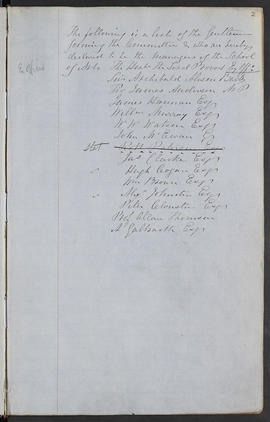 2
The following is a list of the Gentlemen
forming the Committee & who are hereby
declared to be the managers of the School
of Arts The Hon: the Lord Provost Ex Officio
Ex Officio
Sir Archibald Alison Bart
James Anderson M P
James Hannan Esq
William Murray Esq
W W Watson Esq
John McEwan Esq
stet
Esq
Jas Clarke Esq
Hugh Cogan Esq
Wm Brown Esq
Alexr Johnston Esq
Peter Clouston Esq
Prof Allan Thomson
A Galbraith Esq